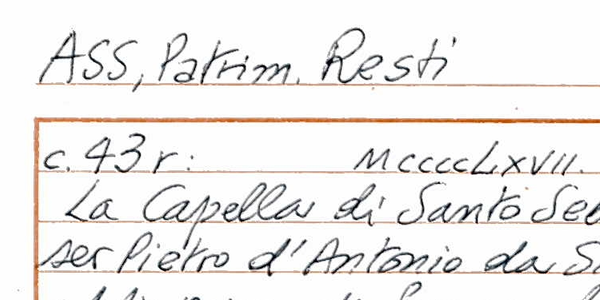 ASS, Patrim. Resti
c. 43 r: MCCCCLXVII.
La Capella di Santo
ser Pietro d'Antonio da